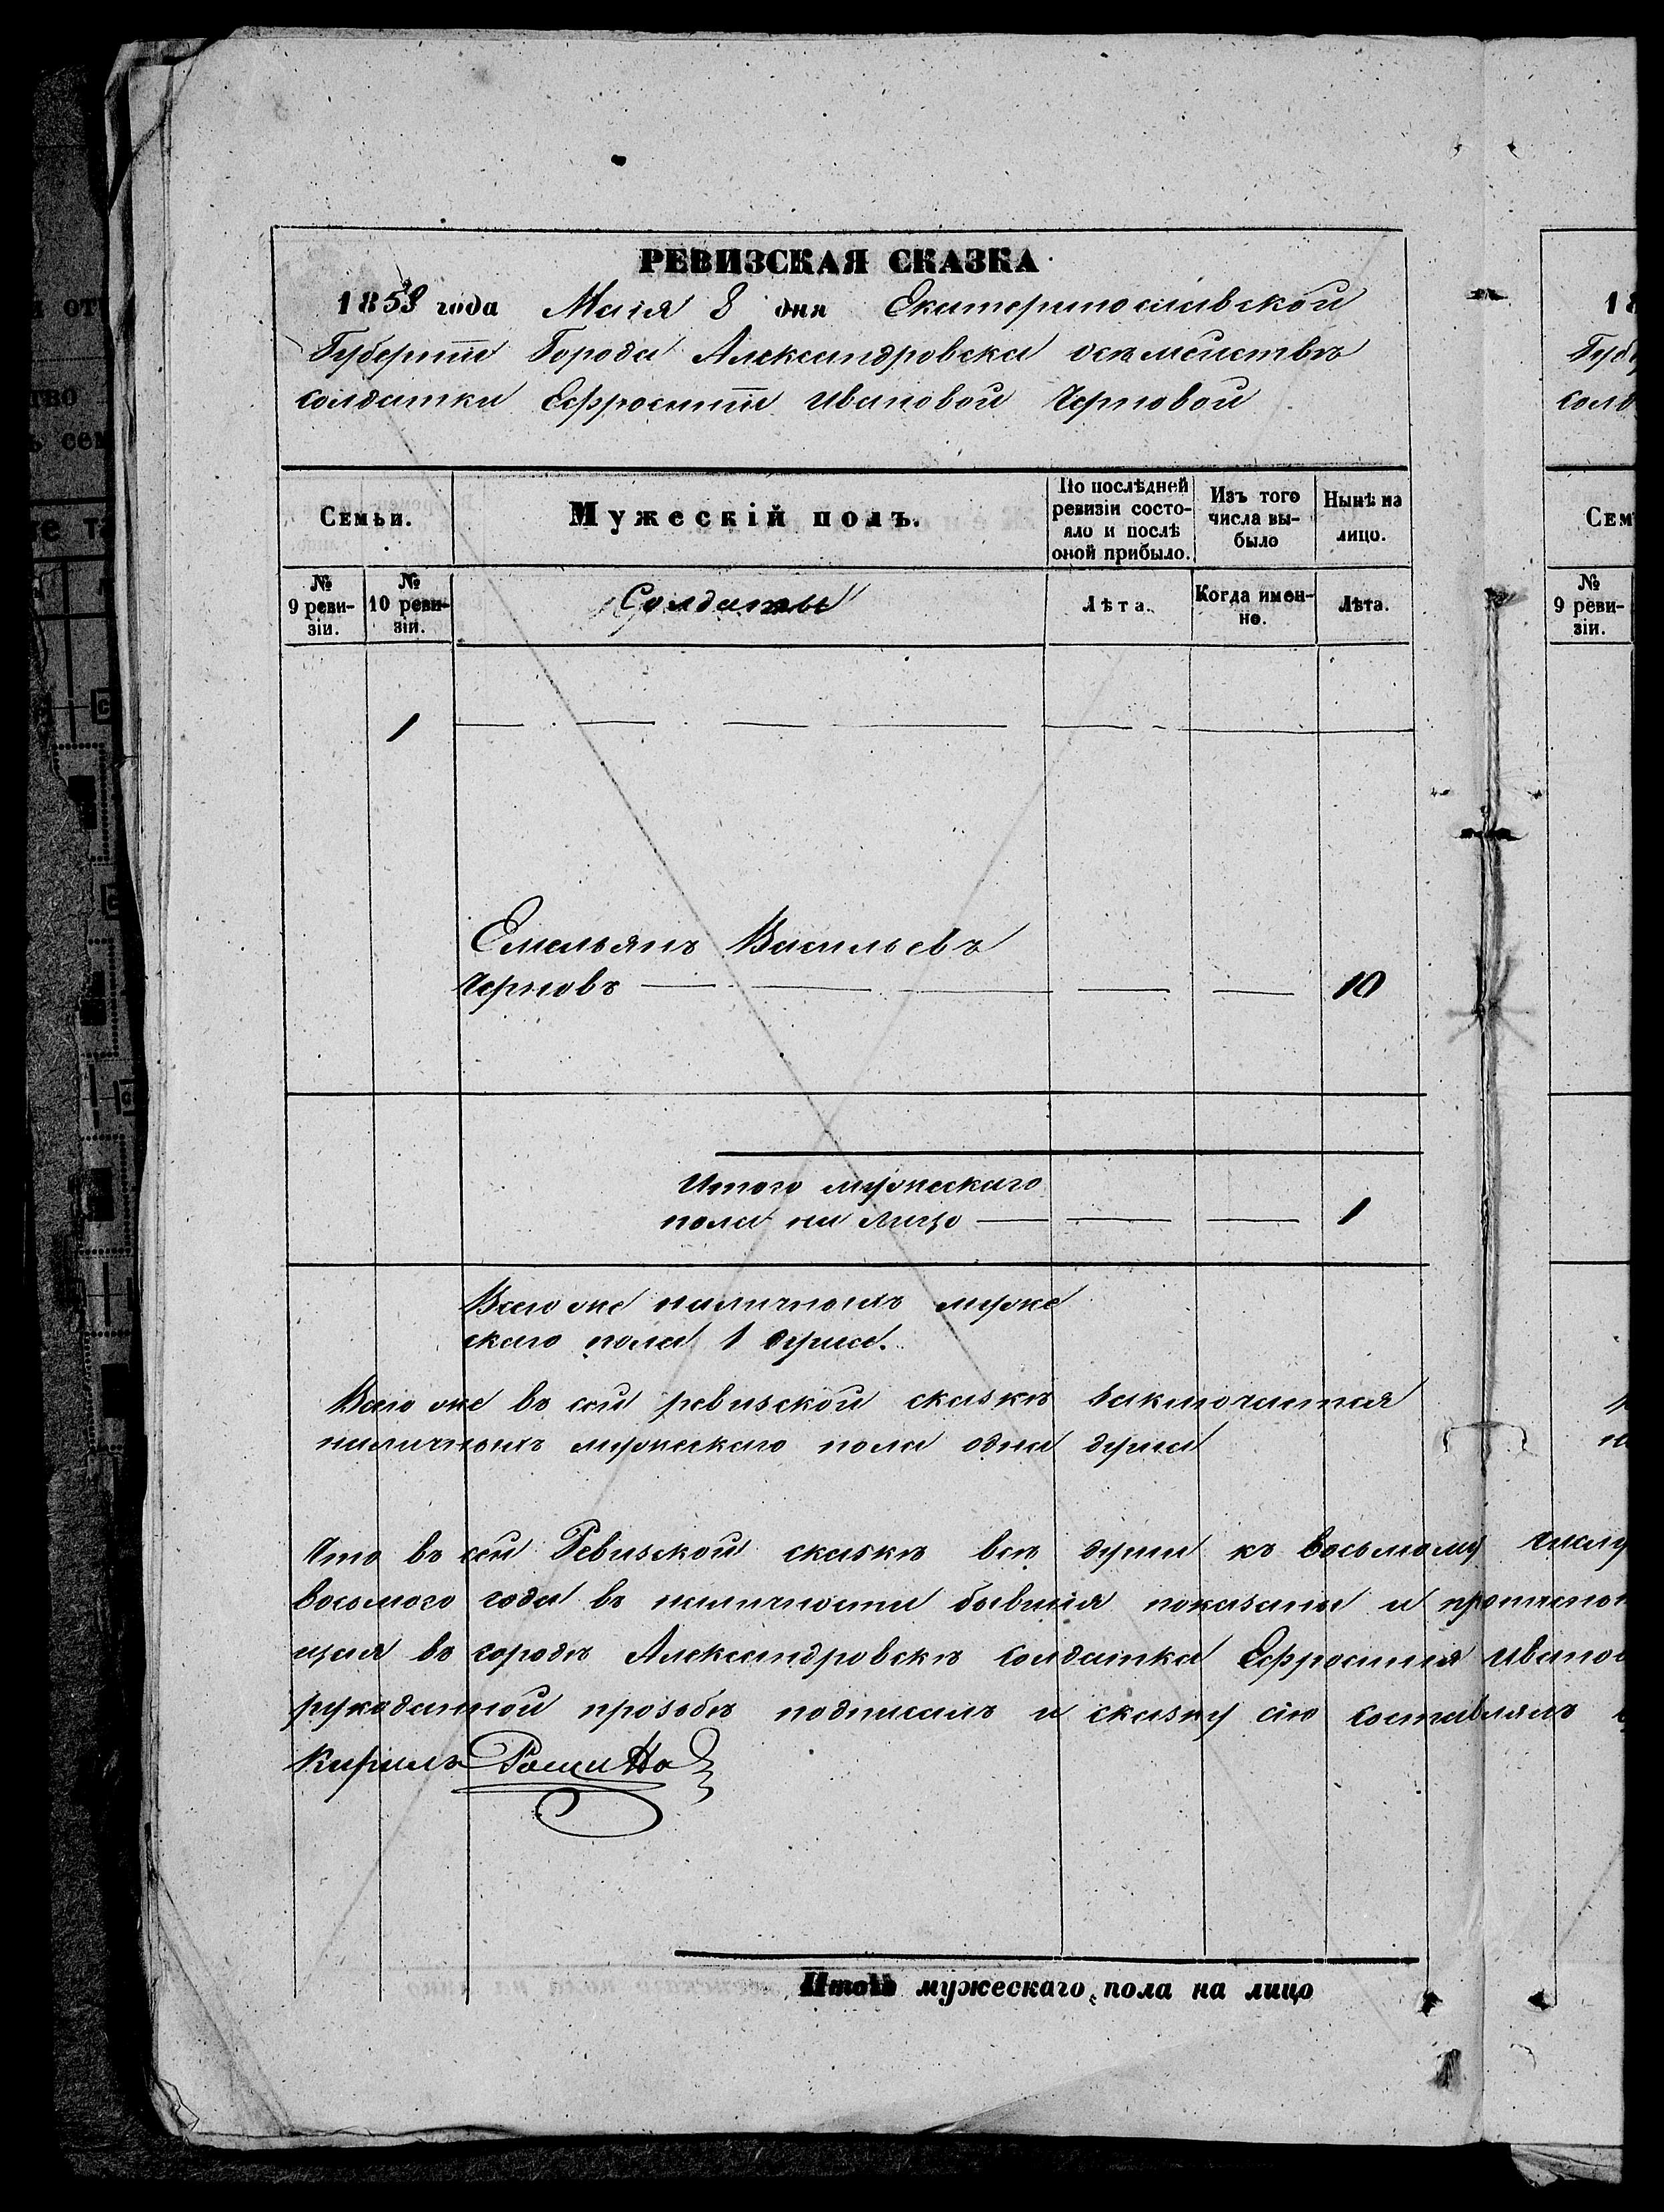 РЕВИЗСКАЯ СКАЗКА
1858 года Маія 8 дня Екатеринославской
Губерніи Города Александровска о семействѣ
солдатки Ефросиніи Ивановой Черновой
Семьи.
Мужескій полъ.
По послѣдней ревизіи состо-
яло и послѣ оной прибыло.
Изъ того числа вы-
было
Нынѣ на лицо.
№ 9 реви-
зіи.
№ 10 реви-
зіи.
Солдаты
Лѣта.
Когда имен-
но.
Лѣта.
1
Емельянъ Васильевъ
Черновъ 10
Итого мужескаго
пола на лицо 1
Всего же наличныхъ муже
скаго пола 1 душа.
Всего же въ сей ревизской сказкѣ заключается
наличныхъ мужескаго пола одна душа
Что въ сей Ревизской сказкѣ всѣ души къ восьмому числу
восьмого года въ наличности бывшія показаны и
щая въ городѣ Александровскѣ солдатка Ефросинія Иванов
рукоданной прозьбѣ подписалъ и сказку сію составлялъ
Кирилъ
Итого мужескаго пола на лицо
18
Губе
солд
Сем
№ 9 реви-
зіи.